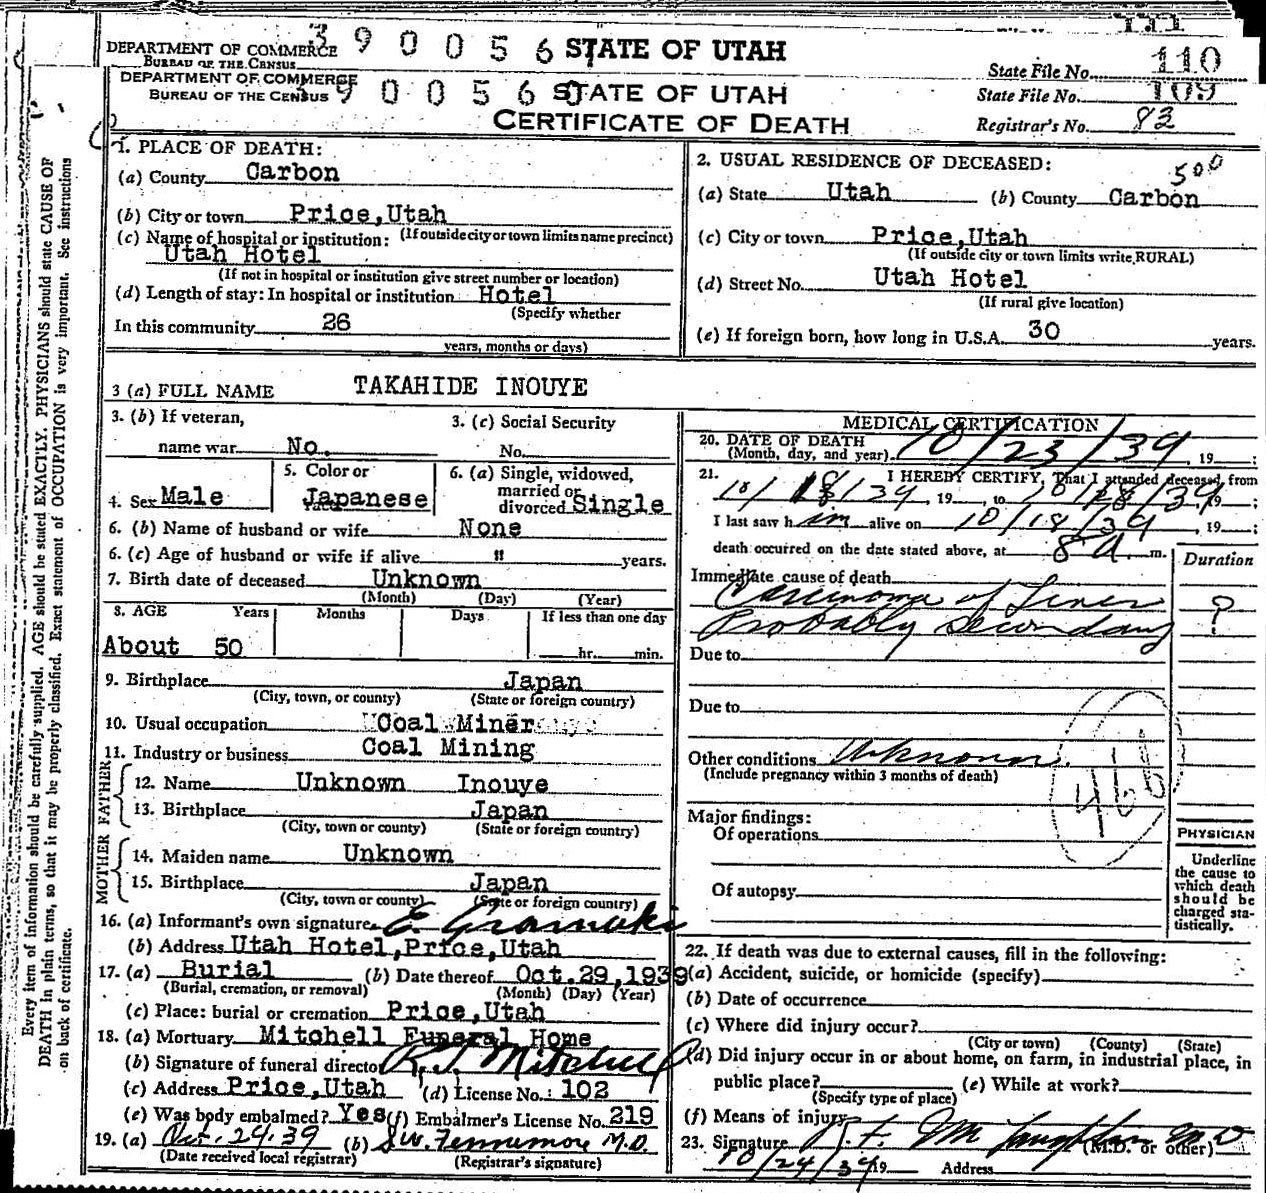 390056
DEPARTMENT OF COMMERCE
BUREAU OF THE CENSUS
STATE OF UTAH
State File No. 110
DEPARTMENT OF COMMERCE
BUREAU OF THE CENSUS
90056
STATE OF UTAH
State File No. 109
CERTIFICATE OF DEATH
Registrar's No. 83
Every item of information should be carefully supplied. AGE should be stated EXACTLY. PHYSICIANS should state CAUSE OF
DEATH in plain terms, so that it may be properly classified. Exact statement of OCCUPATION is very important. See instructions
on back of certificate.
1. PLACE OF DEATH:
(a) County Carbon
(b) City or town Price,Utah
(If outside city or town limits name precinct)
(c) Name of hospital or institution:
Utah Hotel
(If not in hospital or institution give street number or location)
(d) Length of stay: In hospital or institution Hotel
(Specify whether
In this community 26
years, months or days)
2. USUAL RESIDENCE OF DECEASED:
500
(a) State Utah (b) County Carbon
(c) City or town Price,Utah
(If outside city or town limits write RURAL)
(d) Street No. Utah Hotel
(If rural give location)
(e) If foreign born, how long in U.S.A. 30 years.
3 (a) FULL NAME TAKAHIDE INOUYE
3. (b) If veteran,
name war No.
3. (c) Social Security
No.
4. Sex Male
5. Color or
Japanese
6. (a) Single, widowed,
married or
divorced Single
6. (b) Name of husband or wife None
6. (c) Age of husband or wife if alive " years.
7. Birth date of deceased Unknown
(Month) (Day) (Year)
8. AGE Years Months Days If less than one day
About 50 hr. min.
9. Birthplace Japan
(City, town, or county) (State or foreign country)
10. Usual occupation Coal Miner
11. Industry or business Coal Mining
FATHER
12. Name Unknown Inouye
13. Birthplace Japan
(City, town or county) (State or foreign country)
MOTHER
14. Maiden name Unknown
15. Birthplace Japan
(City, town or county) (State or foreign country)
16. (a) Informant's own signature E.
(b) Address Utah Hotel,Price,Utah
17. (a) Burial (b) Date thereof Oct.29,1939
(Burial, cremation, or removal) (Month) (Day) (Year)
(c) Place: burial or cremation Price,Utah
18. (a) Mortuary Mitchell Funeral Home
(b) Signature of funeral director R.J. Mitchell
(c) Address Price,Utah (d) License No.: 102
(e) Was body embalmed? Yes (f) Embalmer's License No. 219
19. (a) Oct. 24.39 (b) S.W. Fennemore M.D.
(Date received local registrar) (Registrar's signature)
MEDICAL CERTIFICATION
20. DATE OF DEATH
(Month, day, and year) 10/23/39, 19 :
21. I HEREBY CERTIFY, That I attended deceased from
10/18/39, 19 , to 10/18/39, 19 ;
I last saw him alive on 10/18/39, 19 ;
death occurred on the date stated above, at 8 a. m.
Duration
Immediate cause of death
Carcinoma of Liver
Probably Secondary
?
Due to
Due to
Other conditions Unknown.
(Include pregnancy within 3 months of death)
Major findings:
Of operations
Of autopsy
PHYSICIAN
Underline
the cause to
which death
should be
charged sta-
tistically.
22. If death was due to external causes, fill in the following:
(a) Accident, suicide, or homicide (specify)
(b) Date of occurrence
(c) Where did injury occur?
(City or town) (County) (State)
(d) Did injury occur in or about home, on farm, in industrial place, in
public place? (e) While at work?
(Specify type of place)
(f) Means of injury
23. Signature McLaughlin MD
(M.D. or other)
10/24/39 19 Address